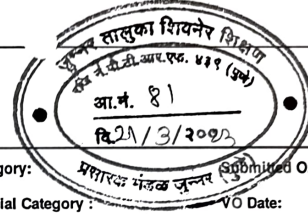 जुन्नर तालुका शिवनेर शिक्षण
रजि नं. पी.टी.आर.एफ. ४३९ (पुणे)
आ.नं. 81
दि. 21/3/2023
प्रसारक मंडळ जुन्नर
gory:
Submitted O
ial Category :
VO Date: